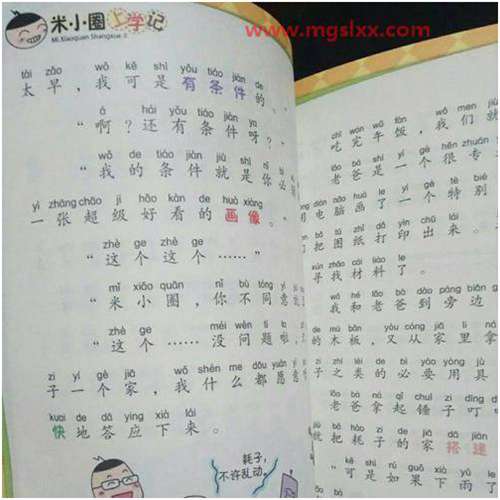 米小圈上学记
Mi Xiaoquan Shangxue Ji
www.mgslxx.com
tài zǎo wǒ kě shì yǒu tiáo jiàn de
太早，我可是有条件的、
á hái yǒu tiáo jiàn ya
“啊？还有条件呀？”
wǒ de tiáo jiàn jiù shì nǐ bì
“我的条件就是你必
yì zhāng chāo jí hǎo kàn de huà xiàng
一张超级好看的画像。
zhè ge zhè ge
“这个这个……”
mǐ xiǎo quān nǐ bù tóng yì
“米小圈，你不同意
zhè ge méi wèn tí la
“这个……没问题啦，
zi yí gè jiā wǒ shén me dōu yuàn yì
子一个家，我什么都愿意
kuài de dā ying xià lái
快地答应下来。
耗子，
不许乱动。
chī wán wǔ fàn wǒ men jiù
吃完午饭，我们就
lǎo bà shì yí gè hěn zhuān
老爸是一个很专
yòng diàn nǎo huà le yí gè tè bié
用电脑画了一个特别
bǎ tú zhǐ dǎ yìn chū lái
把图纸打印出来。
xún zhǎo cái liào le
寻找材料了。
wǒ hé lǎo bà dào páng biān
我和老爸到旁边
de mù bǎn yòu cóng jiā lǐ ná
的木板，又从家里拿
zi zhī lèi de bì yào yòng jù
子之类的必要用具
lǎo bà ná qǐ chuí zi dīng
老爸拿起锤子叮
jiù bǎ hào zi de jiā dā jiàn
就把耗子的家搭建
kě shì rú guǒ xià yǔ le
“可是如果下雨了